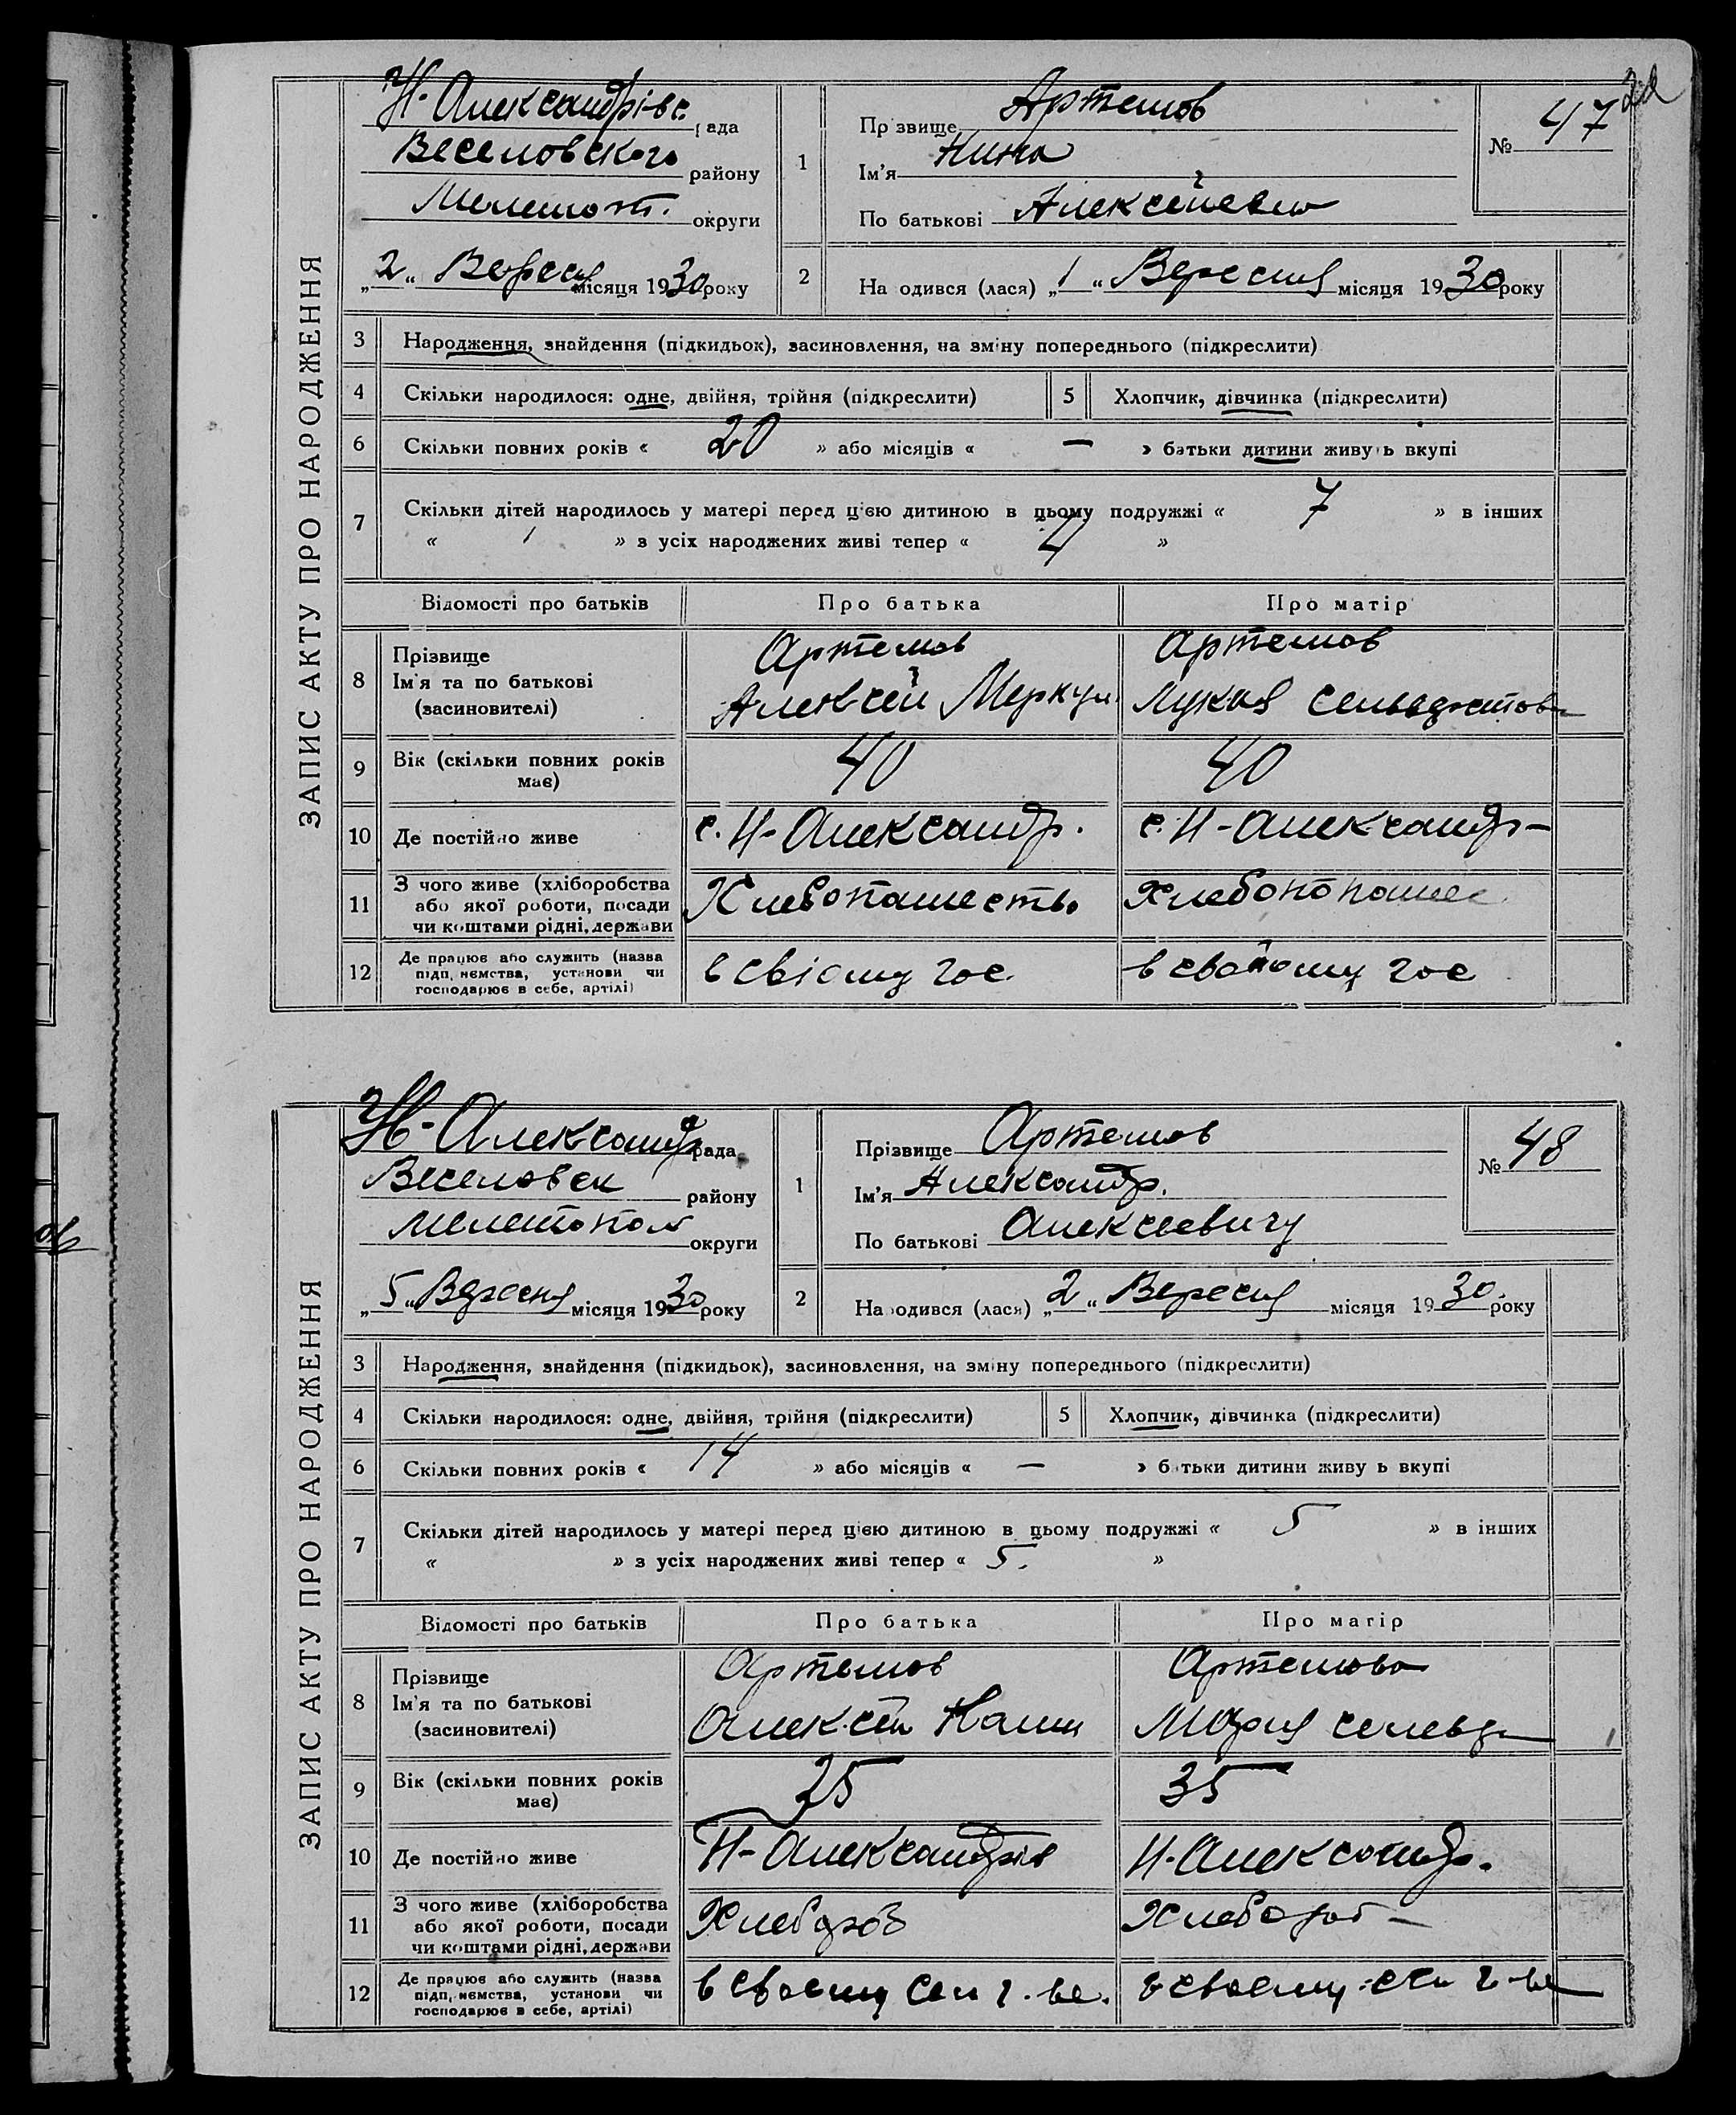 ЗАПИС АКТУ ПРО НАРОДЖЕННЯ
Н-Александрівс. рада
Веселовского району
Мелетоп. округи
„2“ Вересня місяця 1930 року
1
Прізвище Артемов
Ім'я Нина
По батькові Алексеевна
№ 47
2
Народився (лася) „1“ Вересня місяця 1930 року
3 Народження, знайдення (підкидьок), засиновлення, на зміну попереднього (підкреслити)
4 Скільки народилося: одне, двійня, трійня (підкреслити) 5 Хлопчик, дівчинка (підкреслити)
6 Скільки повних років « 20 » або місяців « — » батьки дитини живуть вкупі
7 Скільки дітей народилось у матері перед цією дитиною в цьому подружжі « 7 » в інших
« 1 » з усіх народжених живі тепер « 4 »
Відомості про батьків Про батька Про матір
8 Прізвище Ім'я та по батькові (засиновителі)
Артемов Артемов
Алексей Меркул.
9 Вік (скільки повних років має) 40 40
10 Де постійно живе с. Н-Александр. с. Н-Александр-
11 З чого живе (хліборобства або якої роботи, посади чи коштами рідні, держави
Хлебопашество
12 Де працює або служить (назва підприємства, установи чи господарює в себе, артілі)
в свіому гос. в свойому гос
ЗАПИС АКТУ ПРО НАРОДЖЕННЯ
Н-Александр рада
Веселовск району
Мелетопол округи
„5“ Вересня місяця 1930 року
1
Прізвище Артемов
Ім'я Александр.
По батькові Алексеевичу
№ 48
2
Народився (лася) „2“ Вересня місяця 1930. року
3 Народження, знайдення (підкидьок), засиновлення, на зміну попереднього (підкреслити)
4 Скільки народилося: одне, двійня, трійня (підкреслити) 5 Хлопчик, дівчинка (підкреслити)
6 Скільки повних років « 14 » або місяців « — » батьки дитини живуть вкупі
7 Скільки дітей народилось у матері перед цією дитиною в цьому подружжі « 5 » в інших
« » з усіх народжених живі тепер « 5. »
Відомості про батьків Про батька Про матір
8 Прізвище Ім'я та по батькові (засиновителі)
Артемов Артемова
Алексей Мария
9 Вік (скільки повних років має) 35
10 Де постійно живе Н-Александрів Н-Александр.
11 З чого живе (хліборобства або якої роботи, посади чи коштами рідні, держави
Хлебороб Хлебороб -
12 Де працює або служить (назва підприємства, установи чи господарює в себе, артілі)
в своєму сел г.-ве. в своєму сел г-ве